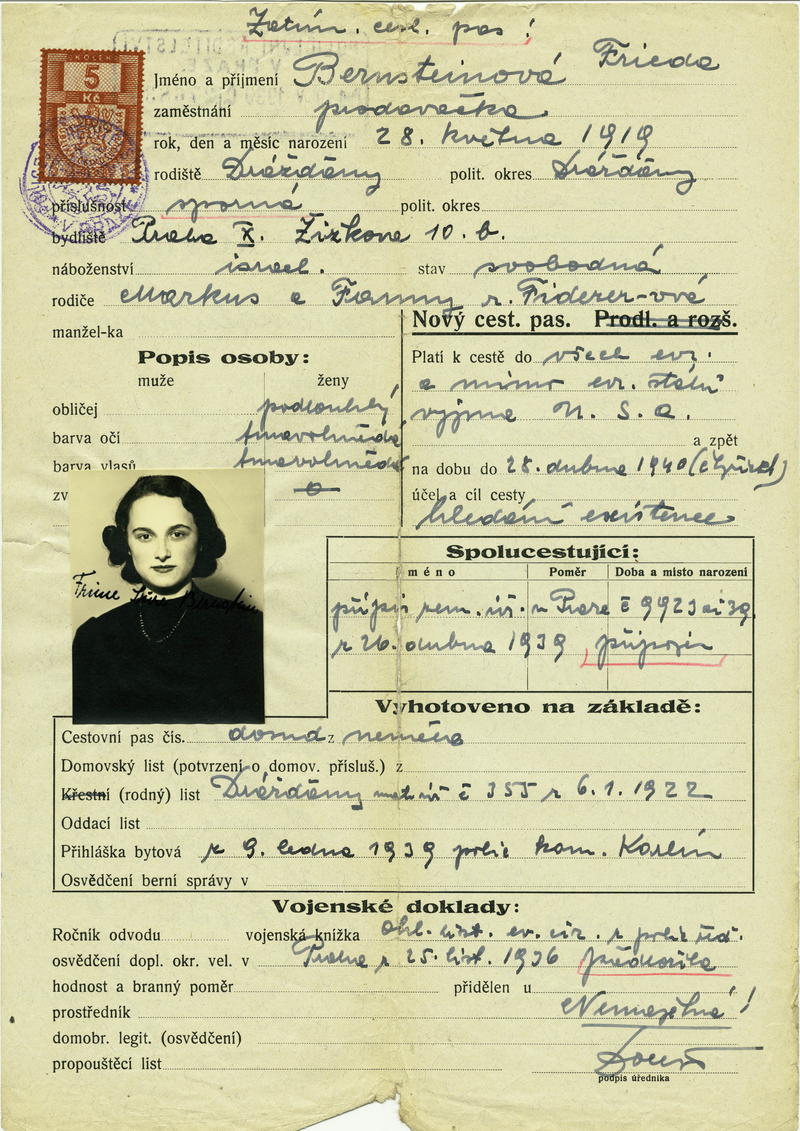 Zatím. cest. pas!
KOLEK
5
Kč
Jméno a příjmení Bernsteinová Frieda
zaměstnání prodavačka
rok, den a měsíc narození 28. května 1919
rodiště Drážďany polit. okres Drážďany
příslušnost sporná polit. okres
bydliště Praha X. Žižkova 10. b.
náboženství israel. stav svobodná
rodiče Markus a Fanny r. Fiderer-vé
manžel-ka
Nový cest. pas. Prodl. a rozš.
Popis osoby:
muže ženy
obličej podlouhlý
barva očí tmavohnědé
barva vlasů tmavohnědé
zv
Platí k cestě do všech evr.
a mimo evr. států
vyjma U. S. A.
a zpět
na dobu do 28. dubna 1940
účel a cíl cesty
hledání existence
Spolucestující:
méno Poměr Doba a místo narození
přípis zem. úř. v Praze č 9923 ai 39
z 26. dubna 1939 připojen
Vyhotoveno na základě:
Cestovní pas čís. dosud z neměla
Domovský list (potvrzení o domov. přísluš.) z
Křestní (rodný) list Drážďany mat. úř. č 355 z 6. 1. 1922
Oddací list
Přihláška bytová z 9. ledna 1939 polic kom. Karlín
Osvědčení berní správy v
Vojenské doklady:
Ročník odvodu vojenská knížka ohl. list. ev. ciz. z polic řed.
osvědčení dopl. okr. vel. v Praha z 25. list. 1936 předložila
hodnost a branný poměr přidělen u
prostředník Nemajetná!
domobr. legit. (osvědčení)
propouštěcí list
podpis úředníka